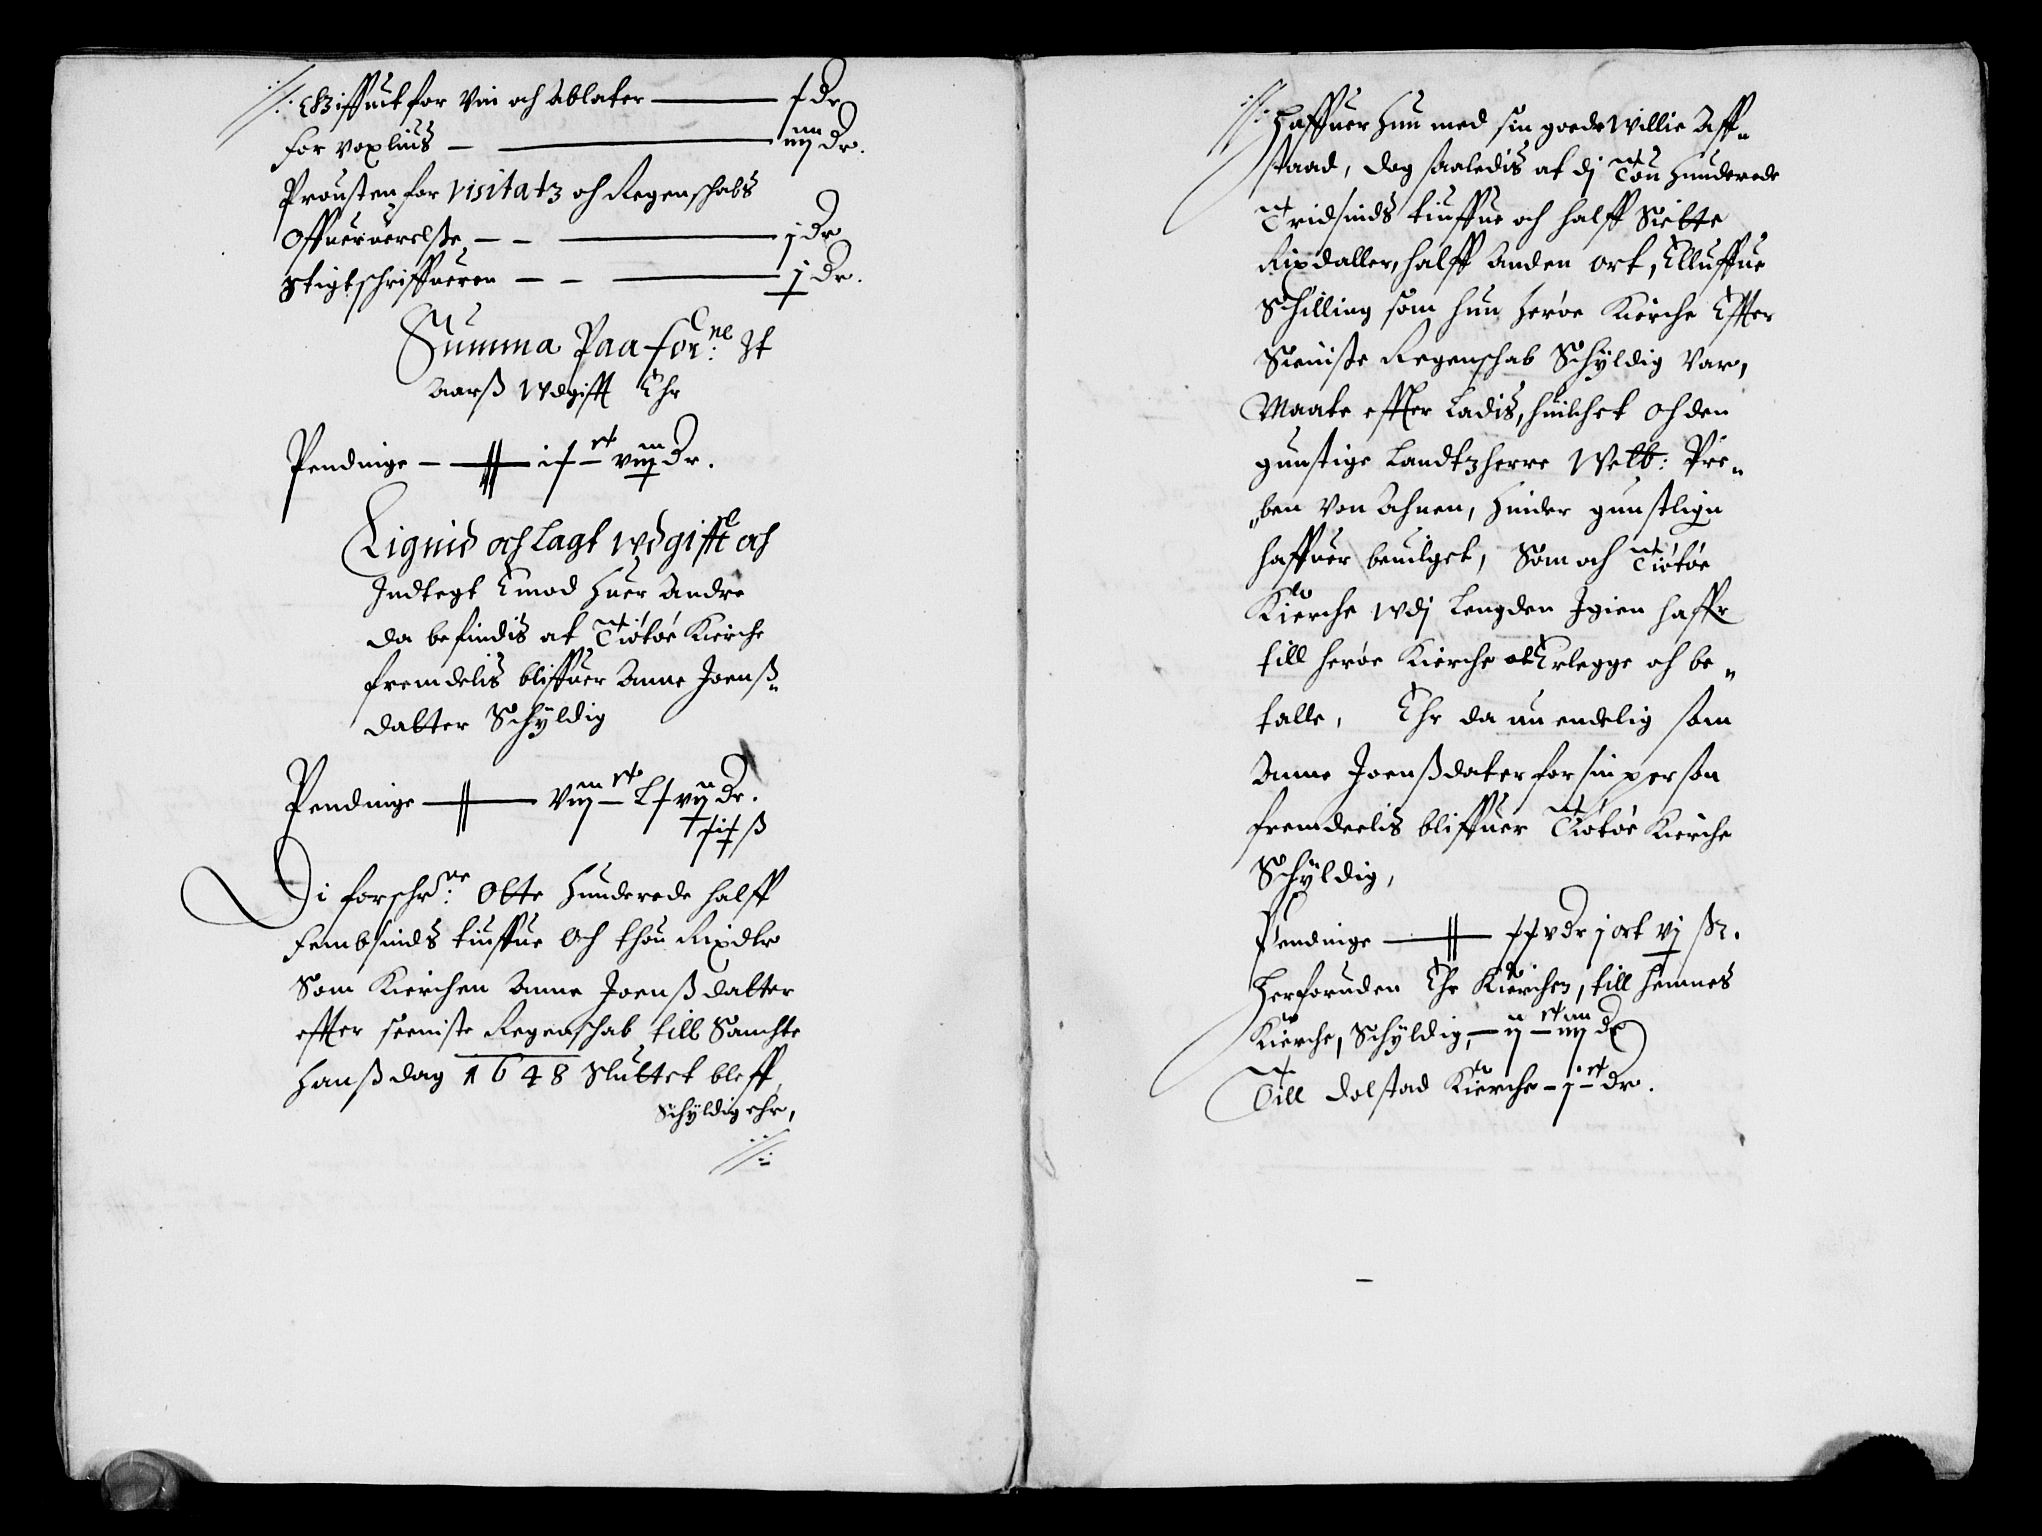 Giffuit for Viin och ablater — x Dr
for voxliuß — iiij Dr.
Prousten for visitatz och Regenschabs
Offueruerelße — j Dr
Stigtschriffueren — j Dr.
Summa Paa for:ne Et
Aarß Wdgifft Ehr
Pendinge — viij Dr.
Lignid och Lagt wdgifft och
Indtegt Emod huer Andre
da befindis at Tiøtøe Kirche
fremdelis bliffuer Anne Joenß„
datter Schÿldig
Pendinge — viijc Lxvij Dr.
xix ß
Di forschr:ne Otte Hunderede halff
Fembsinds tiuffue och thou Rixdlr
Som Kierchen Anne Joenßdatter
effter seeniste Regenschab till Sanchte
Hanß dag 1648 Sluttet bleff
Schÿldig ehr,
Haffuer Hun med sin goede Willie Aff„
staad, dog saaledis at dj Tou Hunderede
Tridsinds tiuffue och halff Siette
Rixdaller, halff Anden ort, Elluffue
Schilling som hun Herøe Kierche Effter
Sieniste Regenschab Schÿldig Var,
Maate effter Ladis, huilchet och den
gunstige Landtzherre Welb: Pre„
„ben Von Ahnen, Hinder gunstligen
haffuer beuilget, Som och Tiøtøe
Kierche wdj Lengden Igien haffr
till Herøe Kierche at Erlegge och be„
talle, Ehr da nu endelig som
Anne Joenßdater for sin person
fremdeelis bliffuer Tiøtøe Kierche
Schÿldig,
Pendinge — Dr j ort vj ß
Herforuden Ehr Kierchen, till Hemnes
Kierche, Schÿldig, — ijc iiij Dr
Till Dolstad Kierche — jc Dr.